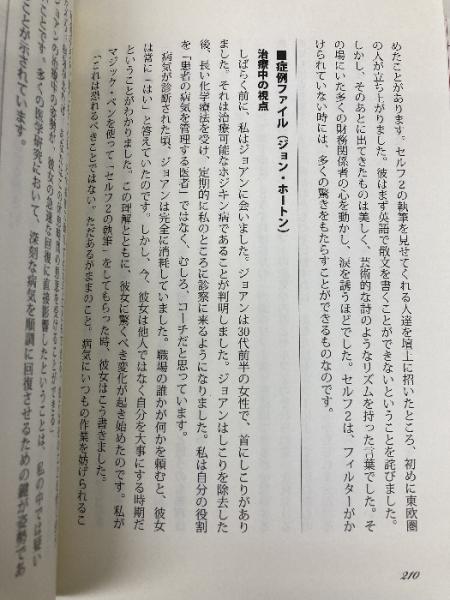 めたことがあります。セルフ2の執筆を見せてくれる人達を壇上に招いたところ、初めに東欧圏
の人が立ち上がりました。彼はまず英語で散文を書くことができないということを詫びました。
しかし、そのあとに出てきたものは美しく、芸術的な詩のようなリズムを持った言葉でした。そ
の場にいた多くの財務関係者の心を動かし、涙を誘うほどでした。セルフ2は、フィルターがか
けられていない時には、多くの驚きをもたらすことができるものなのです。
■症例ファイル(ジョン・ホートン)
治療中の視点
しばらく前に、私はジョアンに会いました。ジョアンは30代前半の女性で、首にしこりがあり
ました。それは治療可能なホジキン病であることが判明しました。ジョアンはしこりを除去した
後、長い化学療法を受け、定期的に私のところに診察に来るようになりました。私は自分の役割
を「患者の病気を管理する医者」ではなく、むしろ、コーチだと思っています。
病気が診断された頃、ジョアンは完全に消耗していました。職場の誰かが何かを頼むと、彼女
は常に「はい」と答えていたのです。しかし、今、彼女は他人ではなく自分を大事にする時期だ
ということがわかりました。この理解とともに、彼女に驚くべき変化が起き始めたのです。私が
マジック・ペンを使って「セルフ2の執筆」をしてもらった時、彼女はこう書きました。
「これは恐れるべきことではない。ただあるがままのこと。病気にいつもの作業を妨げられるこ
彼女の急速な回復に直接影響したということは、私の中では疑い
ことです。多くの医学研究において、深刻な病気を順調に回復させるための鍵が姿勢であ
ことが示されています。
210